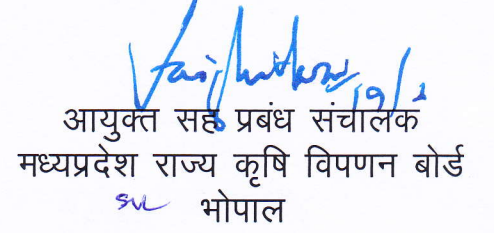 19/2
आयुक्त सह प्रबंध संचालक
मध्यप्रदेश राज्य कृषि विपणन बोर्ड
भोपाल